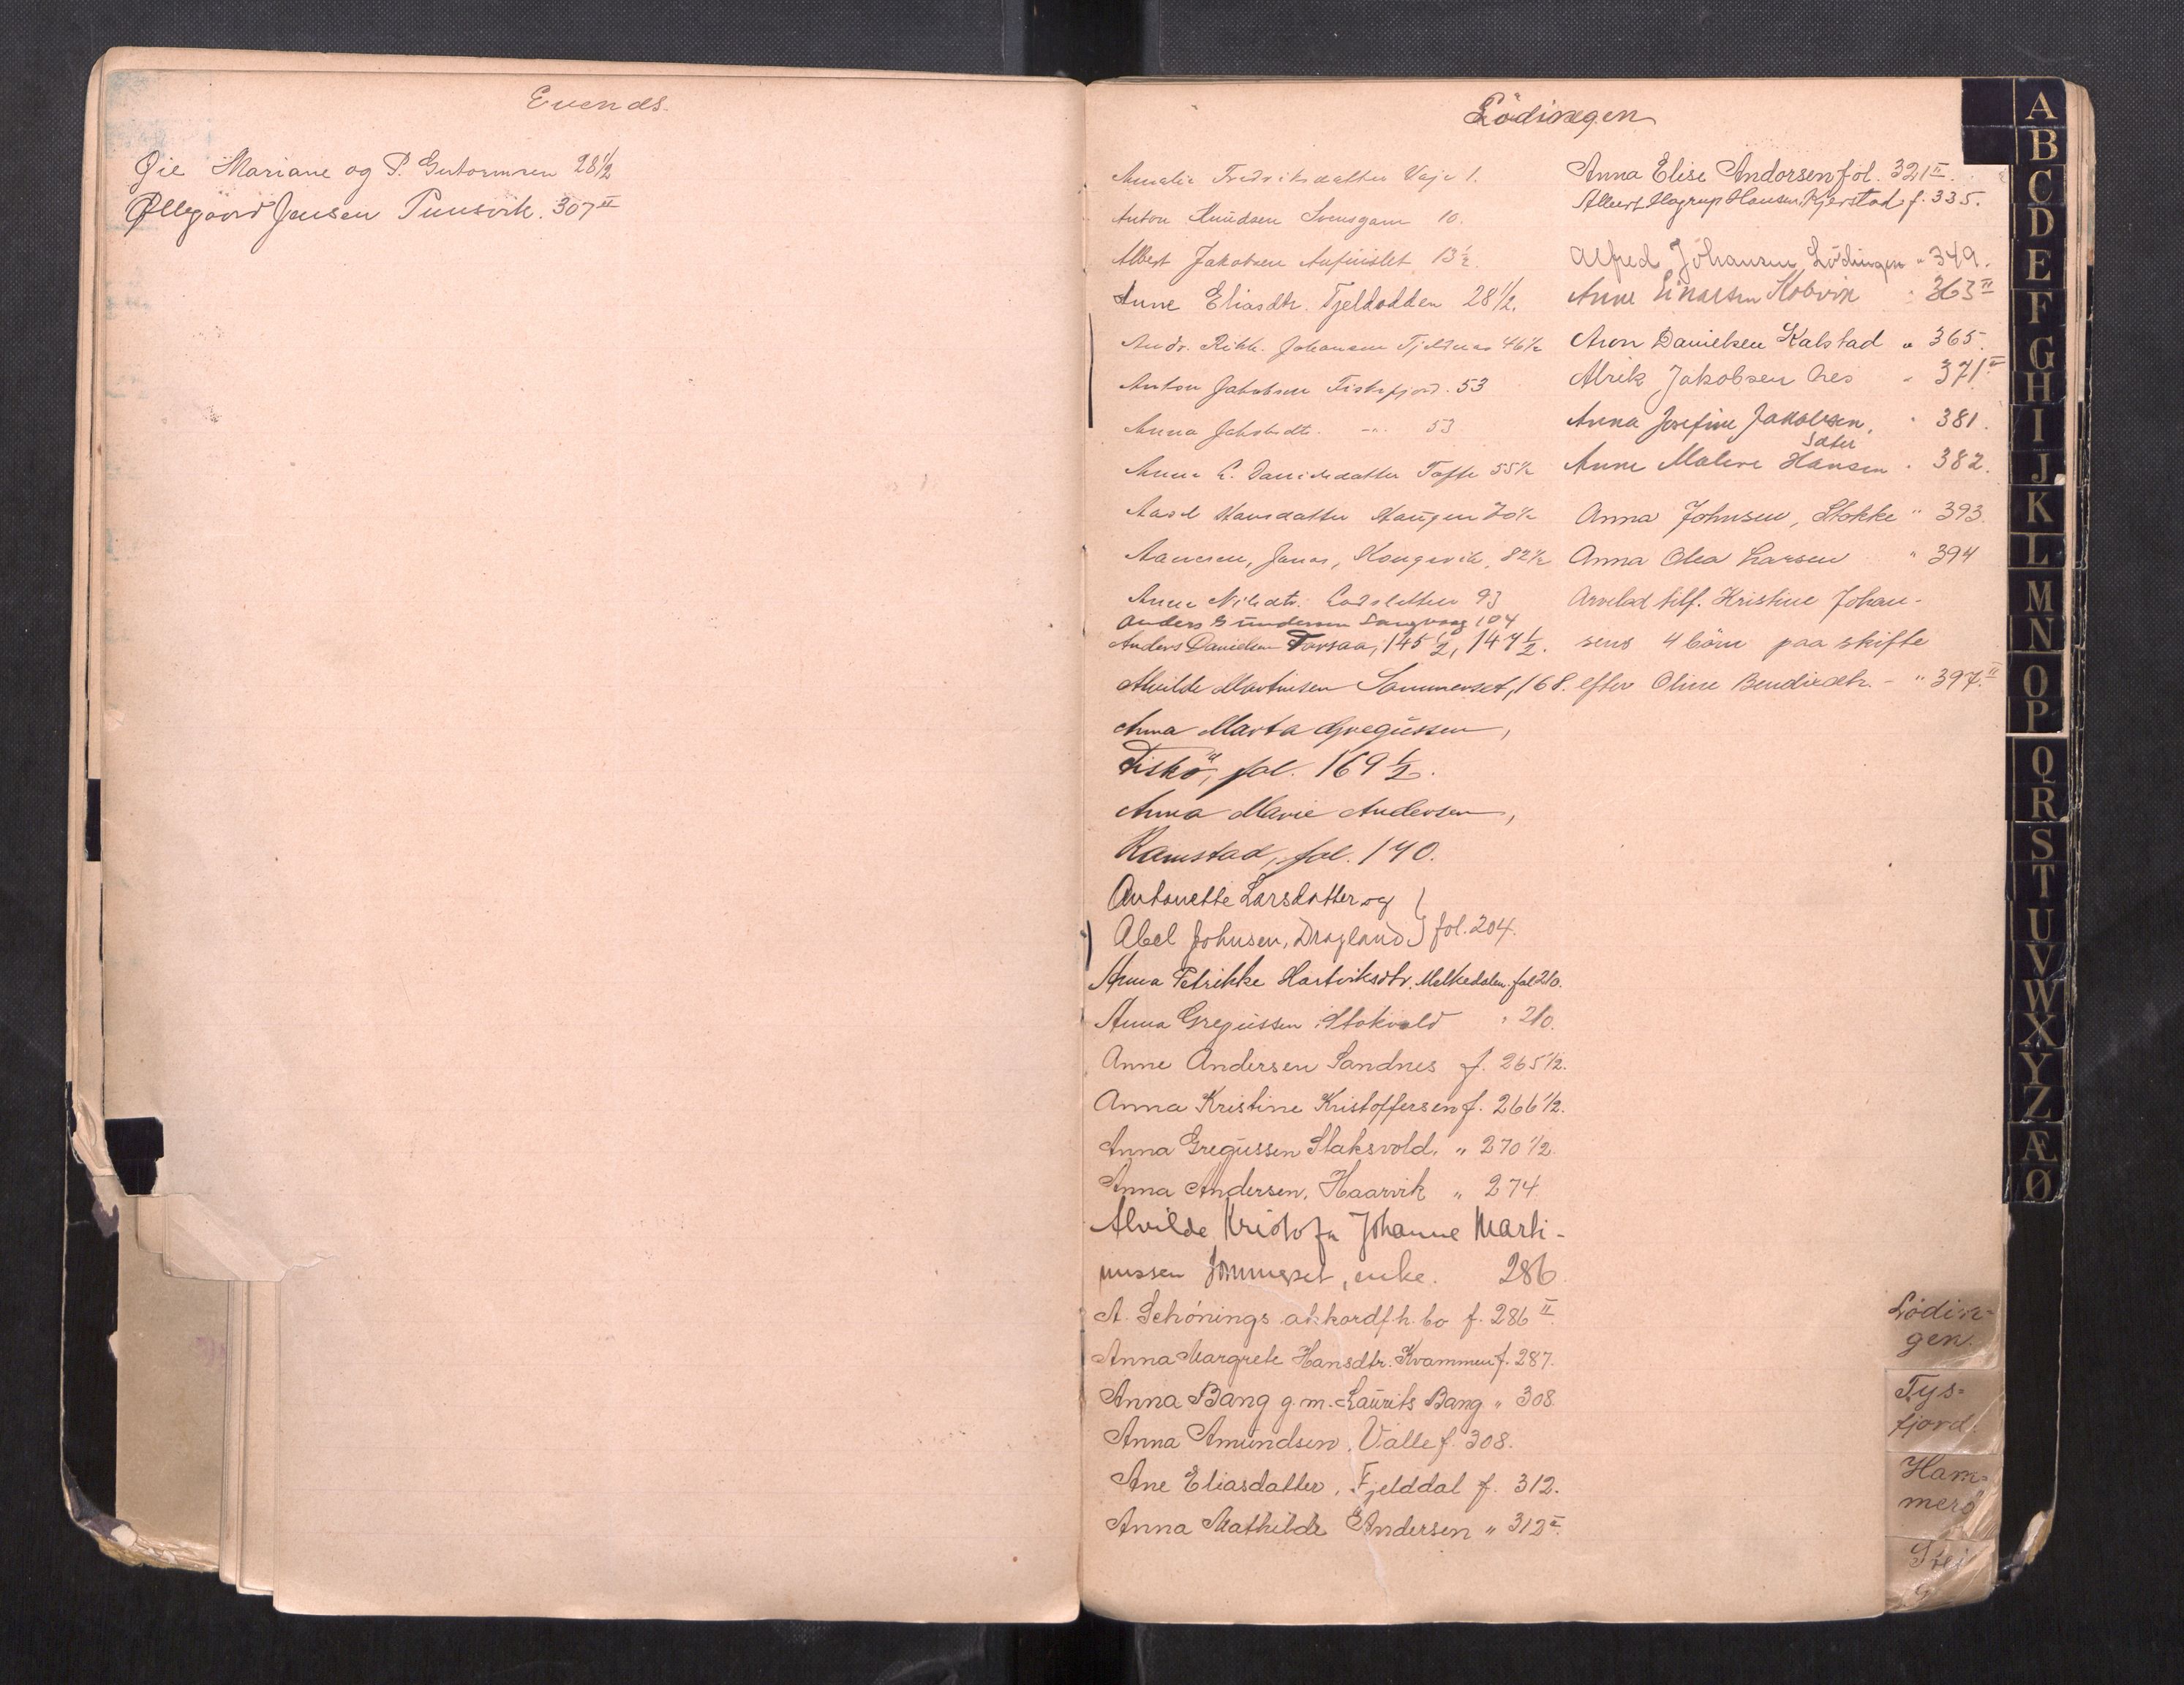 Evends.
Øie Mariane og P. Gutormsen 28 1/2
Øllegaard Jensen Punsvik. 307 II
Lödingen
Amalie Fredriksdatter Vaje 1.
Anton Knudsen Svensgam 10.
Albert Jakobsen 13 1/2.
Anne Eliasdtr. Fjeldodden 28 1/2.
Andr. Rikh. Johansen Tjeldnes 46 1/2
Anton Jakobsen Fiskefjord. 53
Anna Jakobsdtr. -"- 53
Anna E. Danielsdatter Tofte 55 1/2
Aasel Hansdatter Haugen 70 1/2
Aanesen, Jonas, Kongsvik, 82 1/2
Anne Nilsdtr. 93
Anders Gundersen 104
Anders Danielsen Forsaa, 145 1/2, 147 1/2.
Alvilde Martinsen Sommerset, 168.
Anna Marta Gregussen,
Fiskö, fol. 169 1/2.
Anna Marie Andersen,
Ramstad, fol. 170.
Antonette Larsdatter og
Abel Johnsen, Dragland } fol. 204.
Anna Petrikke Hartviksdtr. Melkedalen. fol 210.
Anna Gregussen Stokvold " 210.
Anne Andersen Sandnes f. 265 1/2.
Anna Kristine Kristoffersen f. 266 1/2.
Anna Gregussen Staksvold, " 270 1/2.
Anna Andersen, Haarvik " 274.
Alvilde Kristofa Johanne Marti-
nussen Sommerset, enke. 286
A. Schönings akkordfh. bo f. 286 II.
Anna Margrete Hansdtr. Kvammen f. 287.
Anna Bang g.m. Laurits Bang " 308.
Anna Amundsen, Valle f. 308.
Ane Eliasdatter, Fjelddal f. 312.
Anna Mathilde Andersen " 312 II.
Anna Elise Andorsen fol. 321 II.
Albert Hagrup Hansen, Kjerstad f. 335.
Alfred Johansen Lödingen " 349.
Anne Einarsen Kobvik " 363 II
Aron Danielsen Kalstad " 365.
Alrik Jakobsen Nes " 371 II
Anna Josefine Jakobsen, " 381.
Sæter
Anne Malene Hansen " 382.
Anna Johnsen, Stokke " 393.
Anna Olea Larsen " 394
Arvelod tilf. Kristine Johan-
sens 4 börn paa skifte
efter Oline Bendixdtr. - " 397. II
A
B
C
D
E
F
G
H
I
J
K
L
M
N
O
P
Q
R
S
T
U
V
W
X
Y
Z
Æ
Ø
Lödin=
gen.
Tys=
fjord.
Ham=
merö